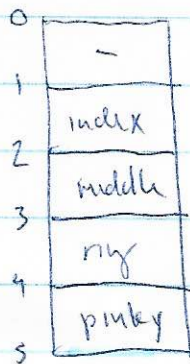 0
–
1
index
2
middle
3
ring
4
pinky
5